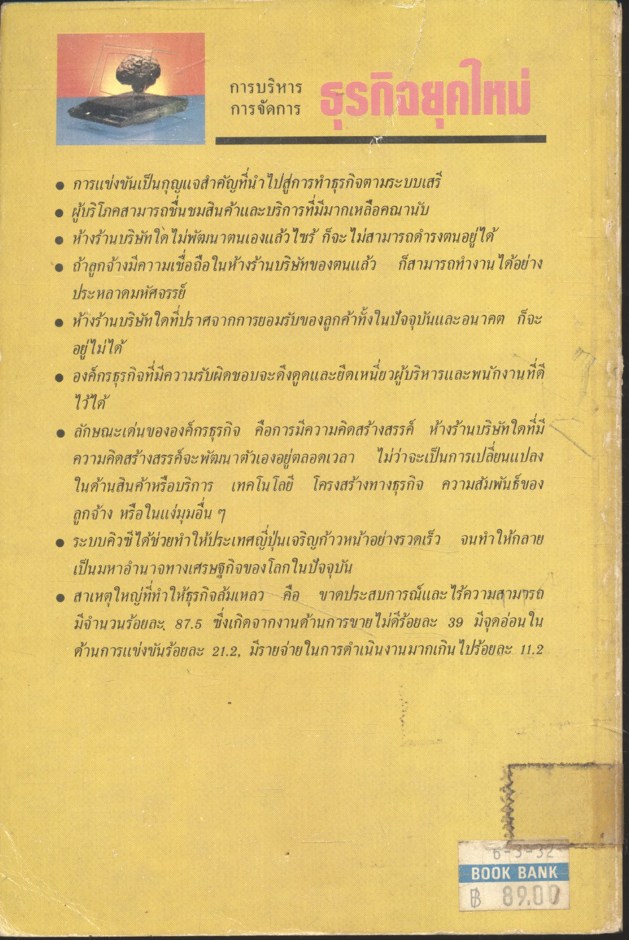 การบริหาร
การจัดการ
ธุรกิจยุคใหม่
● การแข่งขันเป็นกุญแจสำคัญที่นำไปสู่การทำธุรกิจตามระบบเสรี
● ผู้บริโภคสามารถชื่นชมสินค้าและบริการที่มีมากเหลือคณานับ
● ห้างร้านบริษัทใดไม่พัฒนาตนเองแล้วไซร้ ก็จะไม่สามารถดำรงตนอยู่ได้
● ถ้าลูกจ้างมีความเชื่อถือในห้างร้านบริษัทของตนแล้ว ก็สามารถทำงานได้อย่าง
ประหลาดมหัศจรรย์
● ห้างร้านบริษัทใดที่ปราศจากการยอมรับของลูกค้าทั้งในปัจจุบันและอนาคต ก็จะ
อยู่ไม่ได้
● องค์กรธุรกิจที่มีความรับผิดชอบจะดึงดูดและยึดเหนี่ยวผู้บริหารและพนักงานที่ดี
ไว้ได้
● ลักษณะเด่นขององค์กรธุรกิจ คือการมีความคิดสร้างสรรค์ ห้างร้านบริษัทใดที่มี
ความคิดสร้างสรรค์จะพัฒนาตัวเองอยู่ตลอดเวลา ไม่ว่าจะเป็นการเปลี่ยนแปลง
ในด้านสินค้าหรือบริการ เทคโนโลยี โครงสร้างทางธุรกิจ ความสัมพันธ์ของ
ลูกจ้าง หรือในแง่มุมอื่น ๆ
● ระบบคิวซีได้ช่วยทำให้ประเทศญี่ปุ่นเจริญก้าวหน้าอย่างรวดเร็ว จนทำให้กลาย
เป็นมหาอำนาจทางเศรษฐกิจของโลกในปัจจุบัน
● สาเหตุใหญ่ที่ทำให้ธุรกิจล้มเหลว คือ ขาดประสบการณ์และไร้ความสามารถ
มีจำนวนร้อยละ 87.5 ซึ่งเกิดจากงานด้านการขายไม่ดีร้อยละ 39 มีจุดอ่อนใน
ด้านการแข่งขันร้อยละ 21.2, มีรายจ่ายในการดำเนินงานมากเกินไปร้อยละ 11.2
6-3-32
BOOK BANK
฿ 89.00